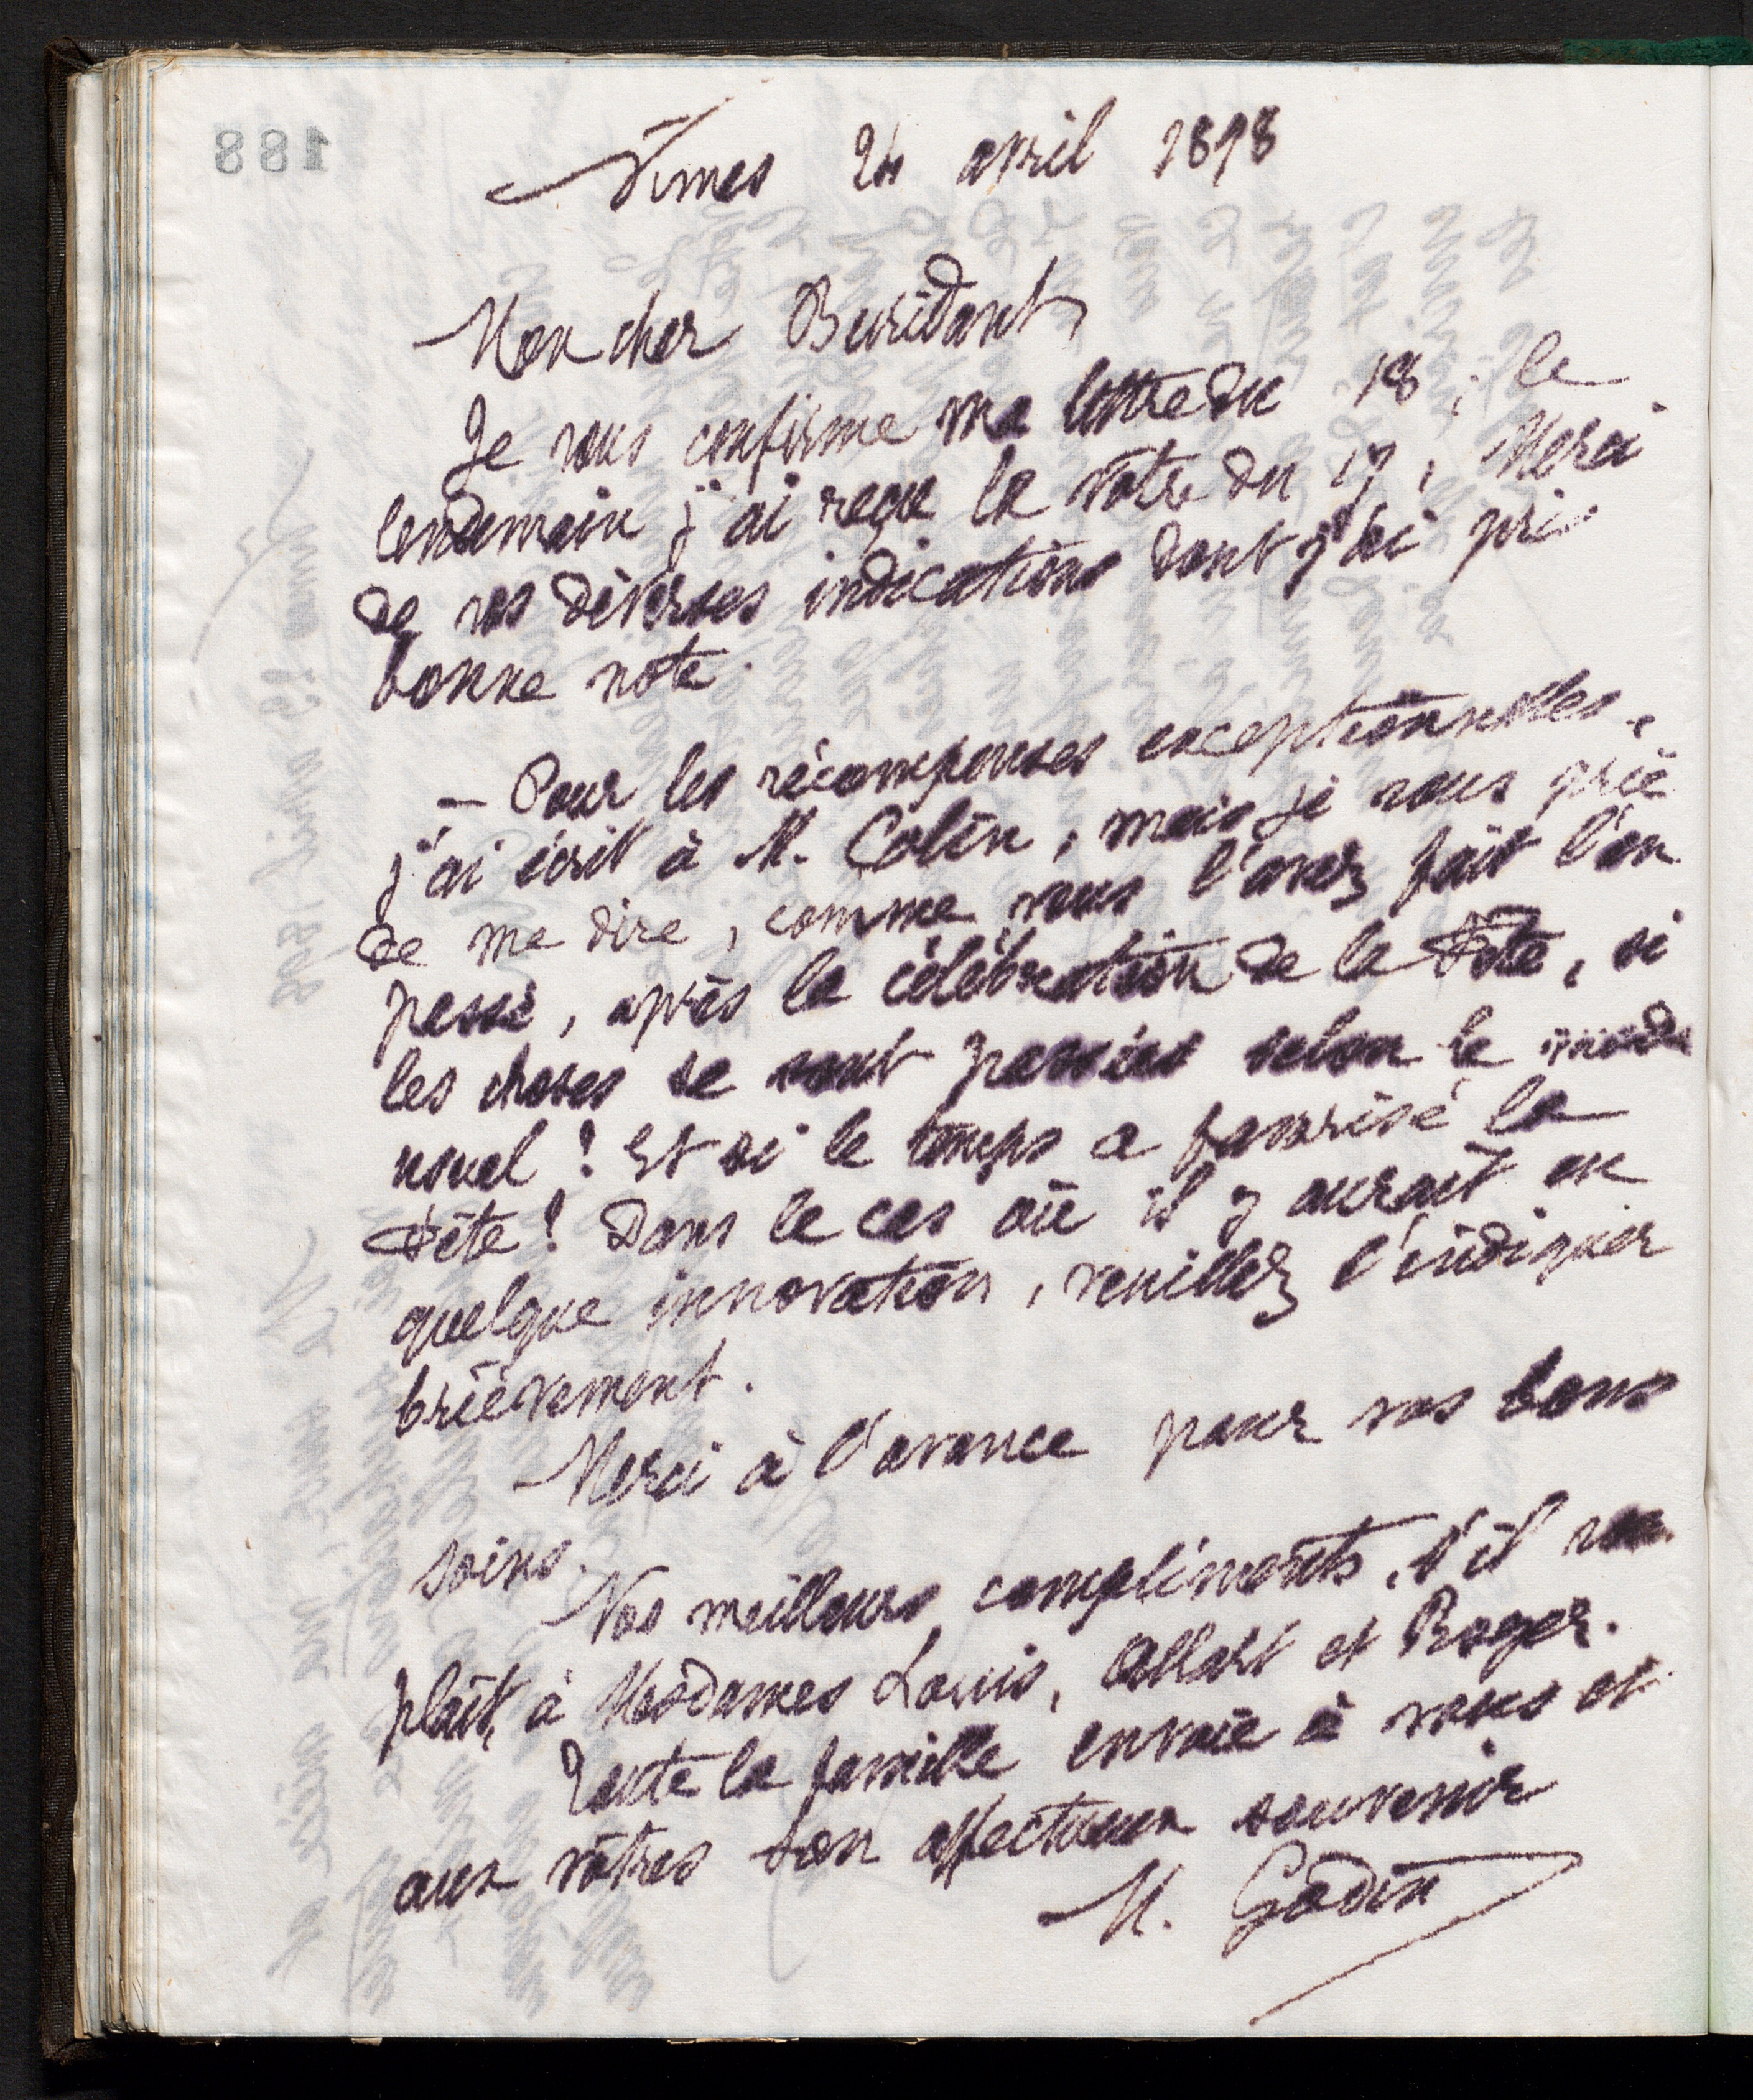 188
Nîmes 24 avril 1898
Mon cher Buridant,
Je vous confirme ma lettre du 18 ; le
lendemain j'ai reçu la vôtre du 17, Merci
de vos diverses indications dont j'ai pris
bonne note.
— Pour les récompenses exceptionnelles,
j'ai écrit à M. Colin, mais je vous prie
de me dire, comme vous l'avez fait l'an
passé, après la célébration de la Fête, si
les choses se sont passées selon le mode
usuel ? Et si le temps a favorisé la
Fête ? Dans le cas où il y aurait eu
quelque innovation, veuillez l'indiquer
brièvement.
Merci à l'avance pour vos bons
soins.
Nos meilleurs compliments, s'il vous
plaît, à Mesdames Louis, Allart et Roger.
Toute la famille envoie à vous et
aux vôtres son affectueux souvenir
M. Godin